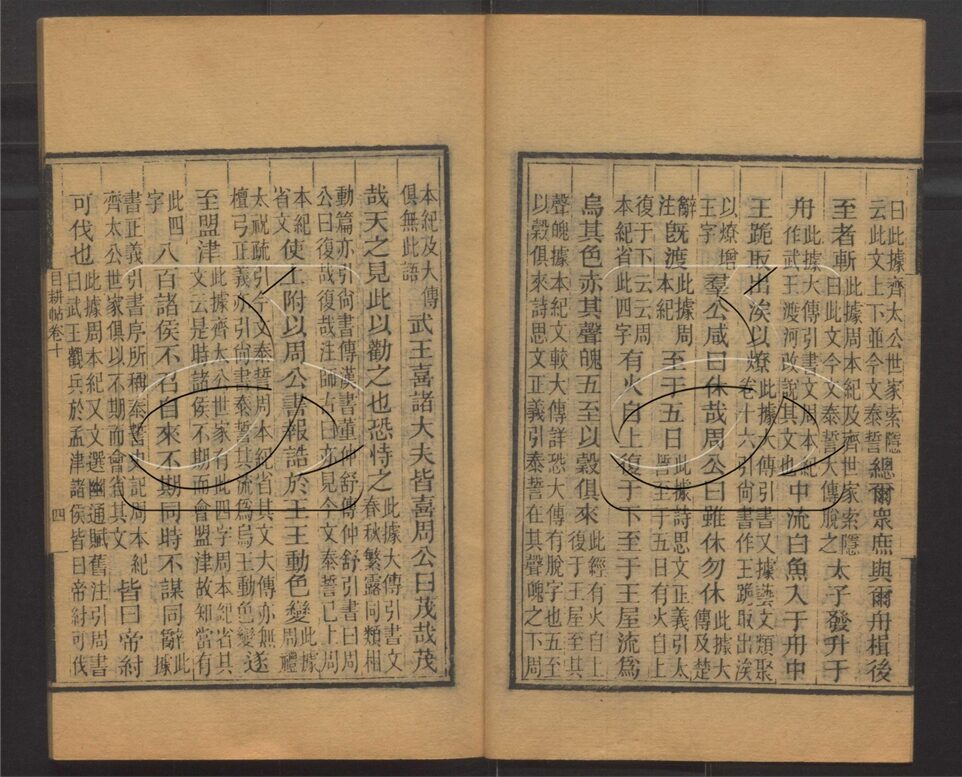 曰此據齊太公世家索隱云此文上下並今文泰誓總爾眾庶與爾舟楫後
至者斬此據周本紀及齊世家索隱曰此文今文泰誓大傳脫之太子發升于
舟此據大傳引書文周本紀作武王渡河改說其文也中流白魚入于舟中
王跪取出涘以燎此據大傳引書又據藝文類聚卷十六引尚書作王跪取出涘
以燎增王字羣公咸曰休哉周公曰雖休勿休此據大傳及楚
辭注旣渡此據周本紀至于五日此據詩思文正義引太誓至于五日有火自上
復于下云云周本紀省此四字有火自上復于下至于王屋流爲
烏其色赤其聲魄五至以穀俱來此經有火自上復于王屋至其
聲魄據本紀文較大傳詳恐大傳有脫字也五至以穀俱來詩思文正義引泰誓在其聲魄之下周
本紀及大傳俱無此語武王喜諸大夫皆喜周公曰茂哉茂
哉天之見此以勸之也恐恃之此據大傳引書文春秋繁露同類相
動篇亦引尚書傳漢書董仲舒傳仲舒引書曰周公曰復哉復哉注師古曰亦見今文泰誓已上周
本紀省文使上附以周公書報誥於王王動色變此據周禮
太祝疏引今文泰誓周本紀省其文大傳亦無檀弓正義亦引尚書泰誓其流爲烏王動色變遂
至盟津此據齊太公世家有此四字周本紀省其文云是時諸侯不期而會盟津故知當有
此四字八百諸侯不召自來不期同時不謀同辭此據
書正義引書序所稱泰誓史記周本紀齊太公世家俱以不期而會省其文皆曰帝紂
可伐也此據周本紀又文選幽通賦舊注引周書曰武王觀兵於孟津諸侯皆曰帝紂可伐
目耕帖卷十 四